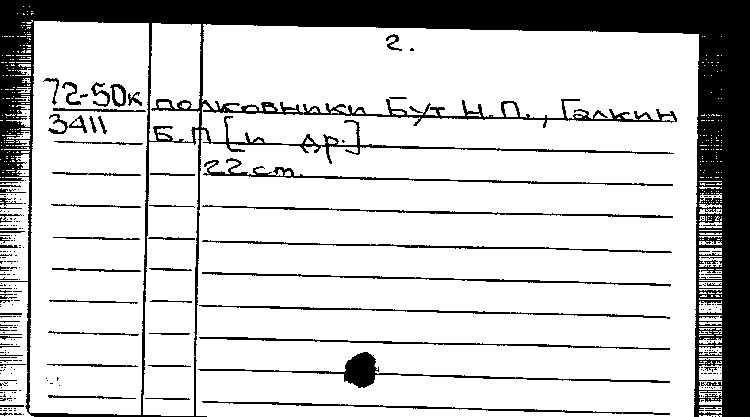 2.
72-50к полковники Бут Н.П., Галкин
3411 Б.П [и др.]
22 см.